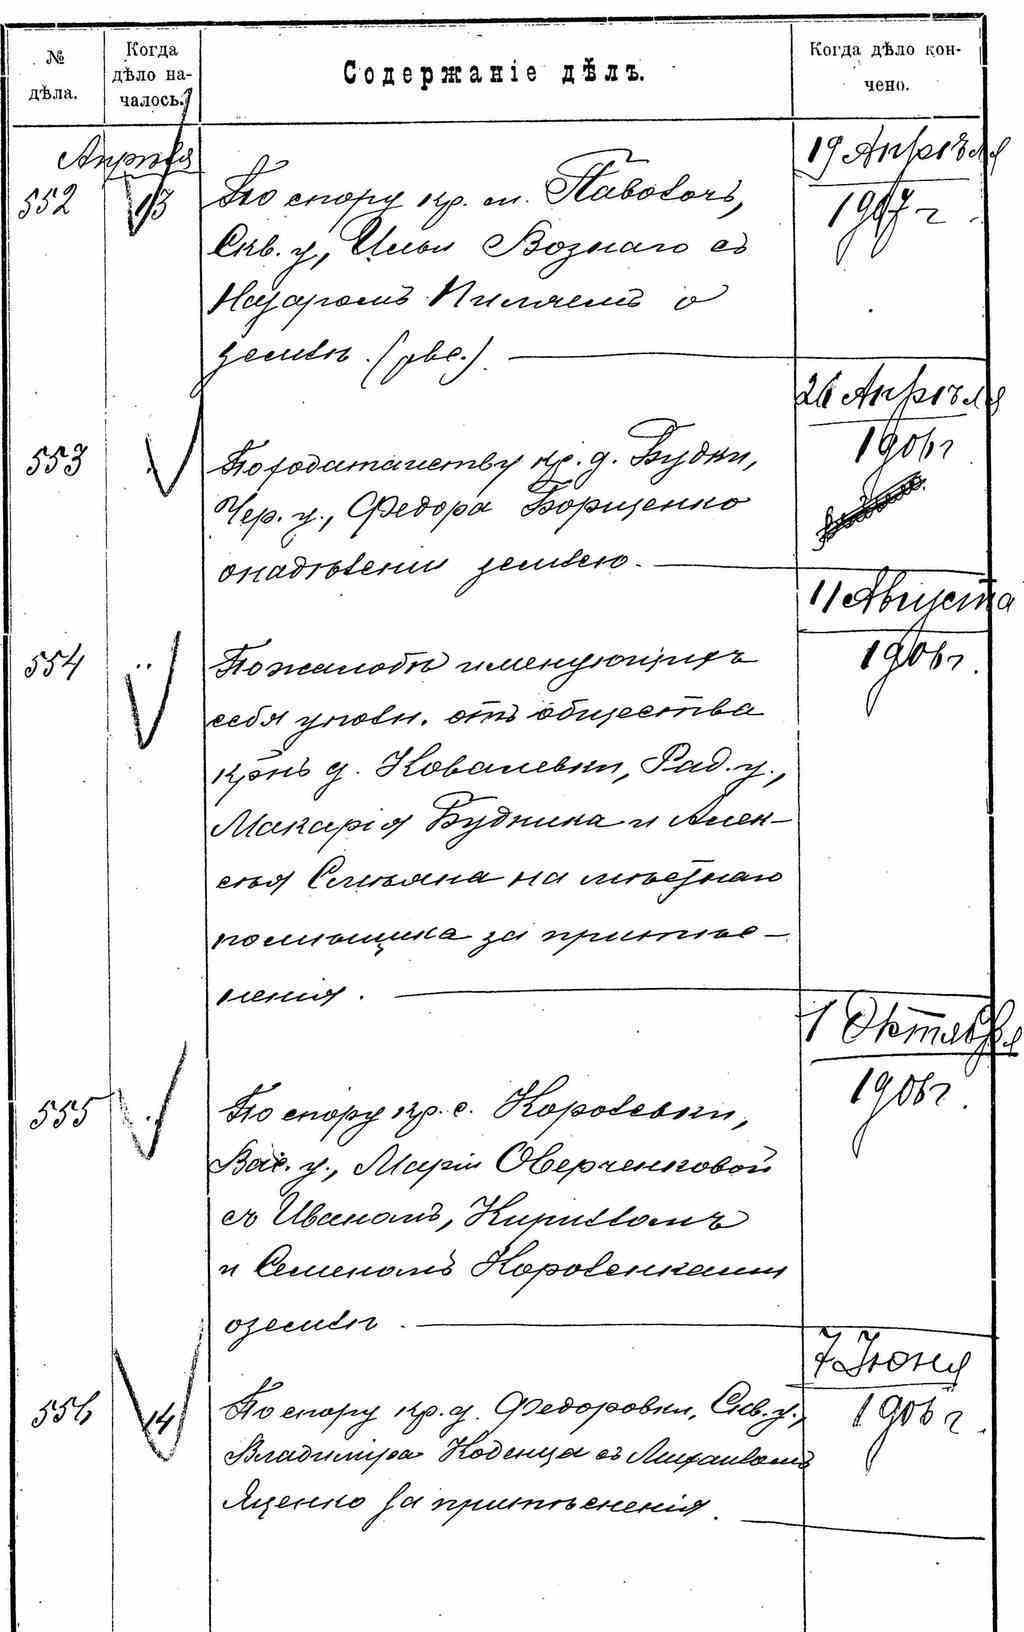 № дѣла.
Когда дѣло на-
чалось.
Содержаніе дѣлъ.
Когда дѣло кон-
чено.
Апрѣля
552
13
По спору кр. м. Паволочъ,
Скв. у., Ильи Вознаго съ
Назаромъ Пилявемъ о
землѣ.
19 Апрѣля
1907 г.
553
"
По ходатайству кр. д. Будки,
Чер. у., Федора Борщенко
о надѣленіи землею.
26 Апрѣля
1906 г
554
"
По жалобѣ именующихъ
себя уполн. отъ общества
кр-нъ д. Ковалевки, Рад. у.,
Макарія Будника и Алек-
сѣя Смѣяна на мѣстнаго
помѣщика за притѣс-
ненія.
11 Августа
1906 г.
555
"
По спору кр. с. Королевки,
Вас. у., Маріи Оверченковой
съ Иваномъ, Кирилломъ
и Семеномъ Короленками
о землѣ.
1 Октября
1906 г.
556
14
По спору кр. д. Федоровки, Скв. у.,
Владиміра Коденца съ Михаиломъ
Яценко за притѣсненія.
7 Іюня
1906 г.